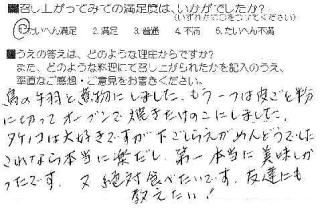 ■召し上がってみての満足度は、いかがでしたか?
(いずれかに○をつけてください)
1.たいへん満足 2.満足 3.普通 4.不満 5.たいへん不満
■うえの答えは、どのような理由からですか?
また、どのような料理にて召し上がられたかを記入のうえ、
率直なご感想・ご意見をお書きください。
鳥の手羽と煮物にしました。もう一つは皮ごと
に切ってオーブンで焼きたけのこにしました。
タケノコは大好きですが下ごしらえがめんどうでした
これなら本当に楽だし、第一本当に美味しか
ったです。又絶対食べたいです。友達にも
教えたい!